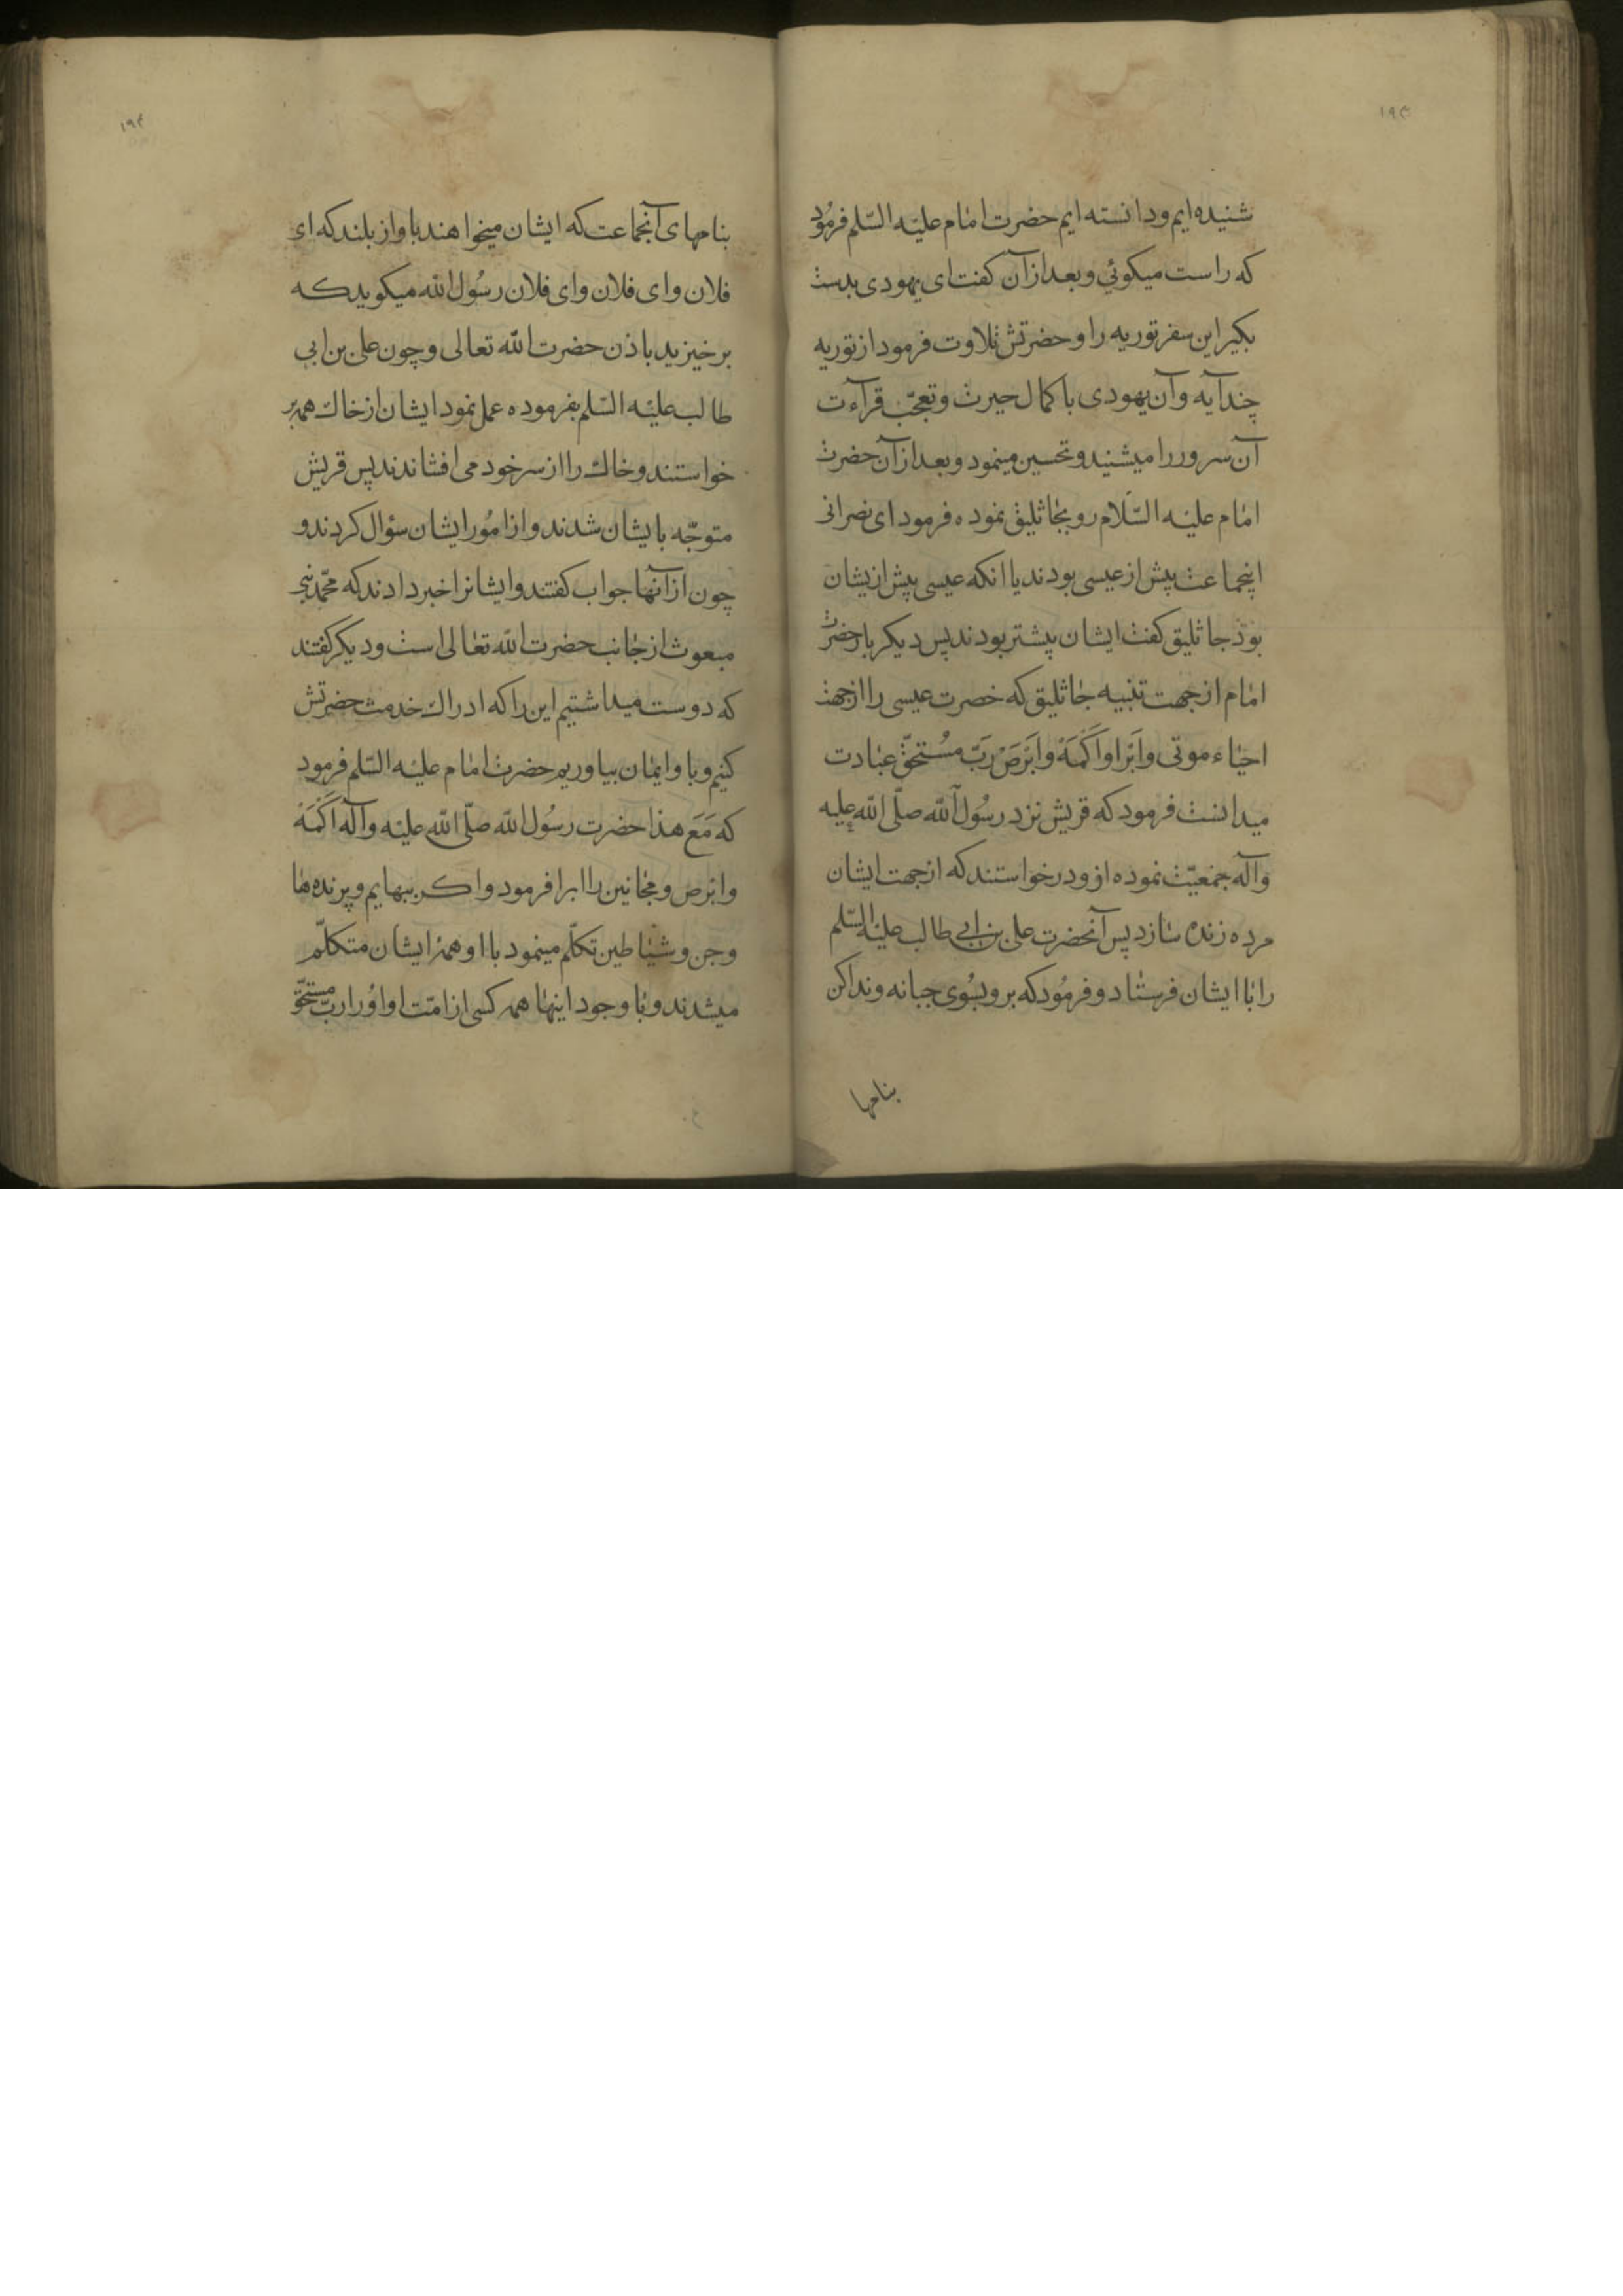 ۱۹۳
شنیده ایم و دانسته ایم حضرت امام علیه السّلم فرمُود
که راست میکوئي و بعد از آن کفت ای یهودی بدست
بکیر این سفر توریه را و حضرتش تلاوت فرمود از توریه
چند آیه و آن یهودی با کمال حیرت و تعجّب قرآءت
آن سرور را میشنید و تحسین مینمود و بعد از آن حضرت
امام علیه السّلام رو بجاثلیق نموده فرمود ای نصرانی
اینجماعت پیش از عیسی بودند یا انکه عیسی پیش ازیشان
بود جاثلیق کفت ایشان پیشتر بودند پس دیکر بار حضرت
امام از جهت تنبیه جاثلیق که خصرت عیسی را از جهت
احیاء موتی و اَبَرا و اَکْمَهْ و اَبْرَصْ رَبّ مُستحقّ عبادت
میدانست فرمود که قریش نزد رسُول اللّه صلّی اللّه علیه
وآله جمعیّت نموده ازو درخواستند که از جهت ایشان
مرده زنده سازد پس آنحضرت علی بن ابی طالب علیه السّلم
را با ایشان فرستاد و فرمُود که برو بسُوی جبانه و ندا کن
بنامها
بنامهای آنجماعت که ایشان میخواهند باواز بلند که ای
فلان و ای فلان و ای فلان رسُول اللّه میکوید که
برخیزید باذن حضرت اللّه تعالی و چون علی بن ابی
طالب علیه السّلم بفرموده عمل نمود ایشان از خاك همه بر
خواستند و خاك را از سر خود می افشاندند پس قریش
متوجّه بایشان شدند و از امُور ایشان سؤال کردند و
چون از آنها جواب کفتند و ایشانرا خبر دادند که محمّد نبی
مبعوث از جانب حضرت اللّه تعالی است و دیکر کفتند
که دوست میداشتیم این را که ادراك خدمت حضرتش
کنیم و باو ایمان بیاوریم حضرت امام علیه السّلم فرمود
که مَعَ هذا حضرت رسُول اللّه صلّی اللّه علیه وآله اَکْمَهْ
و ابرص و مجانین را ابرا فرمود و اکـر بهایم و پرنده ها
و جن و شیاطین تکلّم مینمود با او همهٔ ایشان متکلّم
میشدند و با وجود اینها همه کسی از امّت او اوُ را ربّ مستحقّ